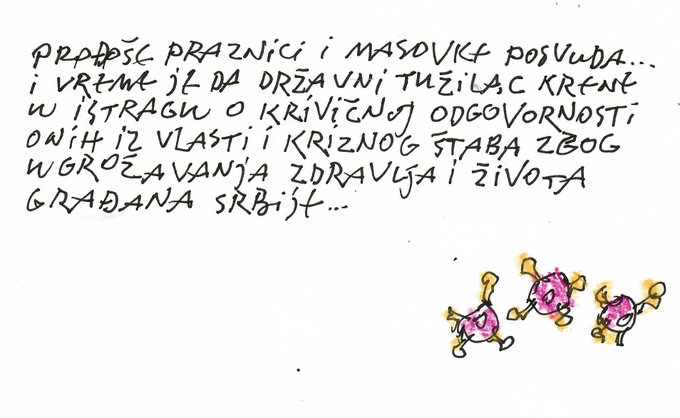 PROĐOŠE PRAZNICI I MASOVKE POSVUDA...
I VREME JE DA DRŽAVNI TUŽILAC KRENE
U ISTRAGU O KRIVIČNOJ ODGOVORNOSTI
OVIH IZ VLASTI I KRIZNOG ŠTABA ZBOG
UGROŽAVANJA ZDRAVLJA I ŽIVOTA
GRAĐANA SRBIJE...